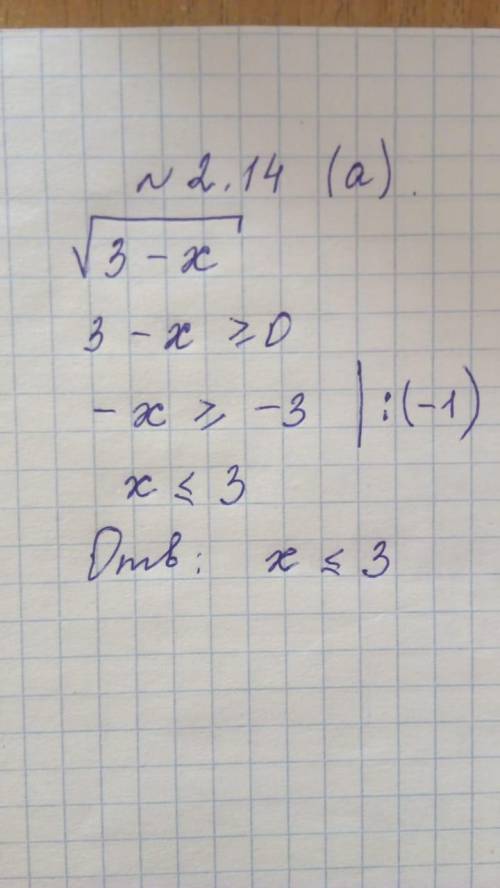 № 2.14 (а).
√3 - x
3 - x ≥ 0
- x ≥ -3 | : (-1)
x ≤ 3
Отв: x ≤ 3